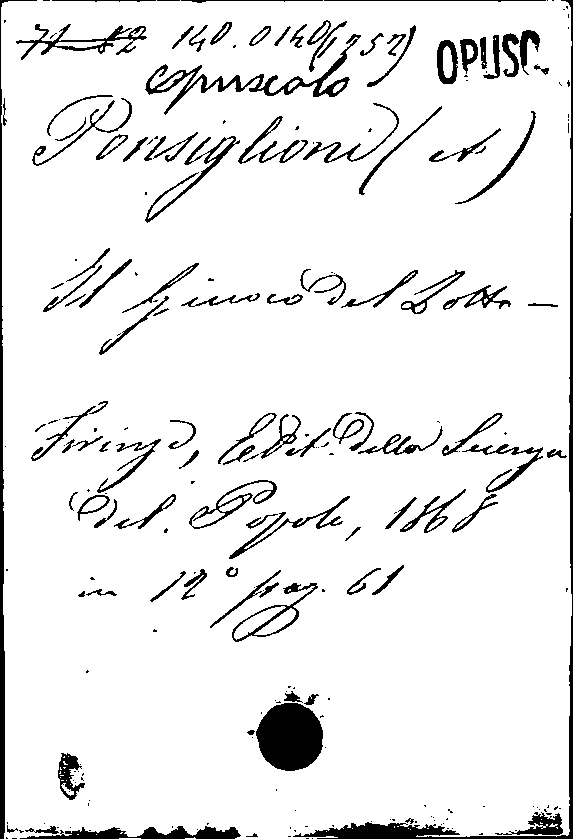 71-82 140.0140(1257) OPUSC.
opuscolo
Ponsiglioni (A)
Il Giuoco del Lotto —
Firenze, Edit. della Scienza
del Popolo, 1868
in 12° pag. 61